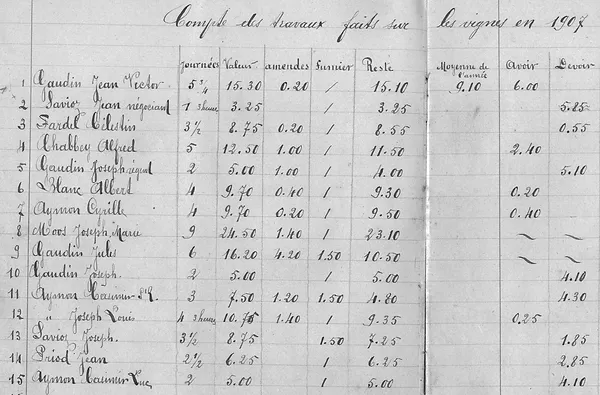 Compte des travaux faits sur les vignes en 1907
Journées Valeur amendes fumier Reste Moyenne de l'année Avoir Devoir
1 Gaudin Jean Victor 5 3/4 15.30 0.20 / 15.10 9.10 6.00
2 Savioz Jean négociant 1 3 heures 3.25 / 3.25 5.85
3 Fardel Célestin 3 1/2 8.75 0.20 / 8.55 0.55
4 Chabbey Alfred 5 12.50 1.00 / 11.50 2.40
5 Gaudin Joseph régent 2 5.00 1.00 / 4.00 5.10
6 Blanc Albert 4 9.70 0.40 / 9.30 0.20
7 Aymon Cyrille 4 9.70 0.20 / 9.50 0.40
8 Moos Joseph Marie 9 24.50 1.40 / 23.10 ~ ~
9 Gaudin Jules 6 16.20 4.20 1.50 10.50 ~ ~
10 Gaudin Joseph. 2 5.00 / 5.00 4.10
11 Aymon Casimir 3 7.50 1.20 1.50 4.80 4.30
12 " Joseph Louis 4 3 heures 10.75 1.40 / 9.35 0.25
13 Savioz Joseph. 3 1/2 8.75 1.50 7.25 1.85
14 Priod Jean 2 1/2 6.25 / 6.25 2.85
15 Aymon Casimir Luc 2 5.00 / 5.00 4.10